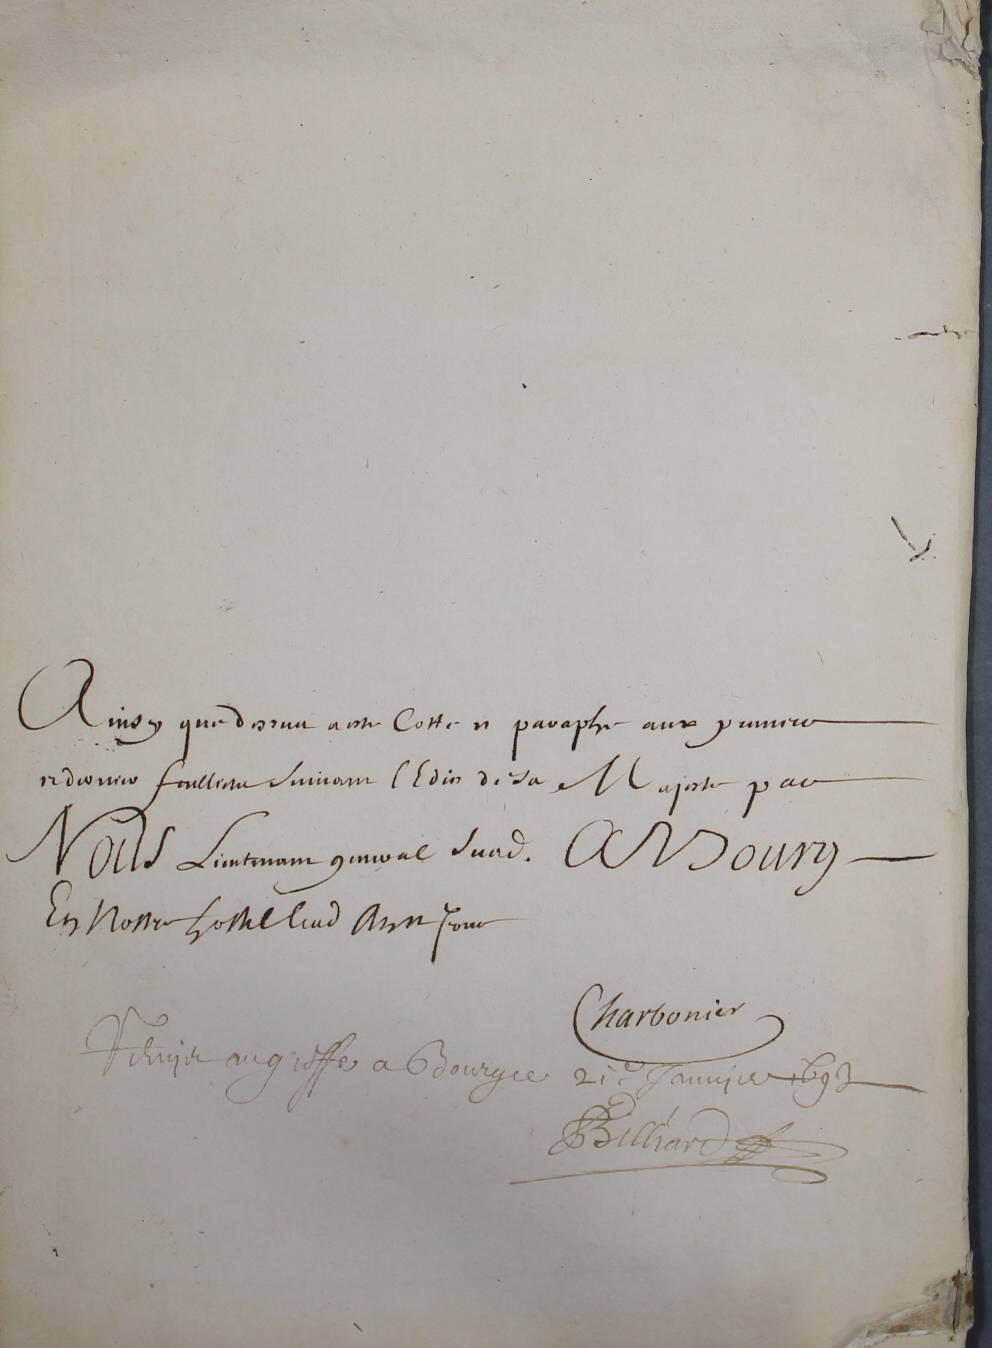 Ainsy que dessus a este Cotte et paraphe aux premier
et dernier feuillets suivant l'Edit de sa Majeste par
Nous Lieutenant general susd. A Bourg
En Nostre hostel lesd an et jour
Charbonier
au greffe a Bourg ce 21e Janvier 1693
Billiard